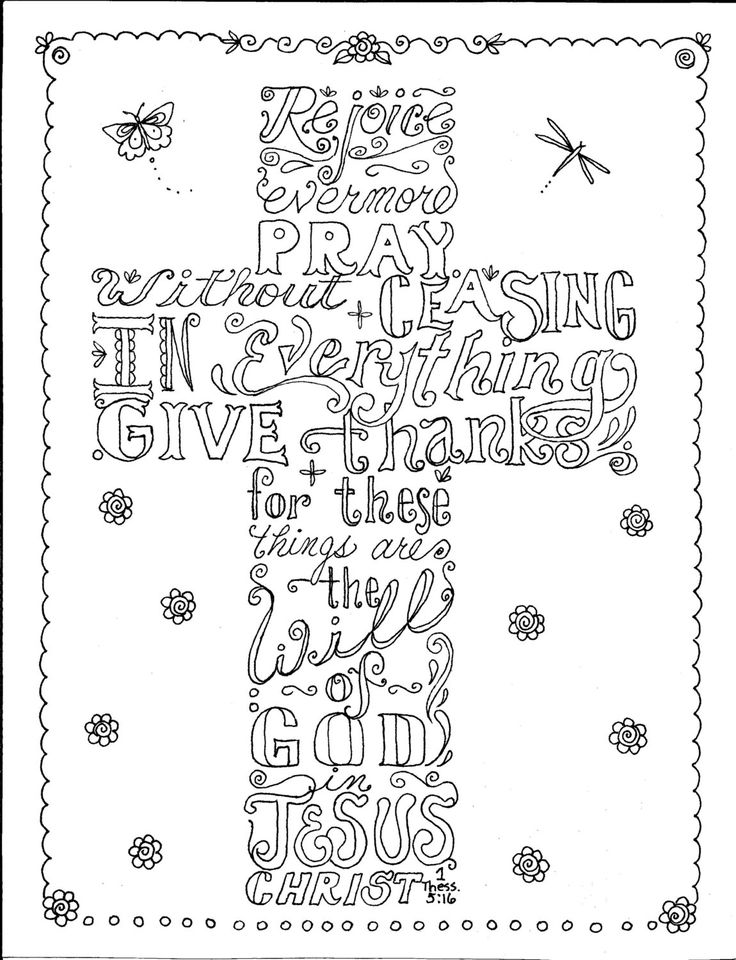 Rejoice
evermore
PRAY
Without CEASING
IN Everything
GIVE thanks
for these
things are
the
Will
of
GOD
in
JESUS
CHRIST
1
Thess.
5:16